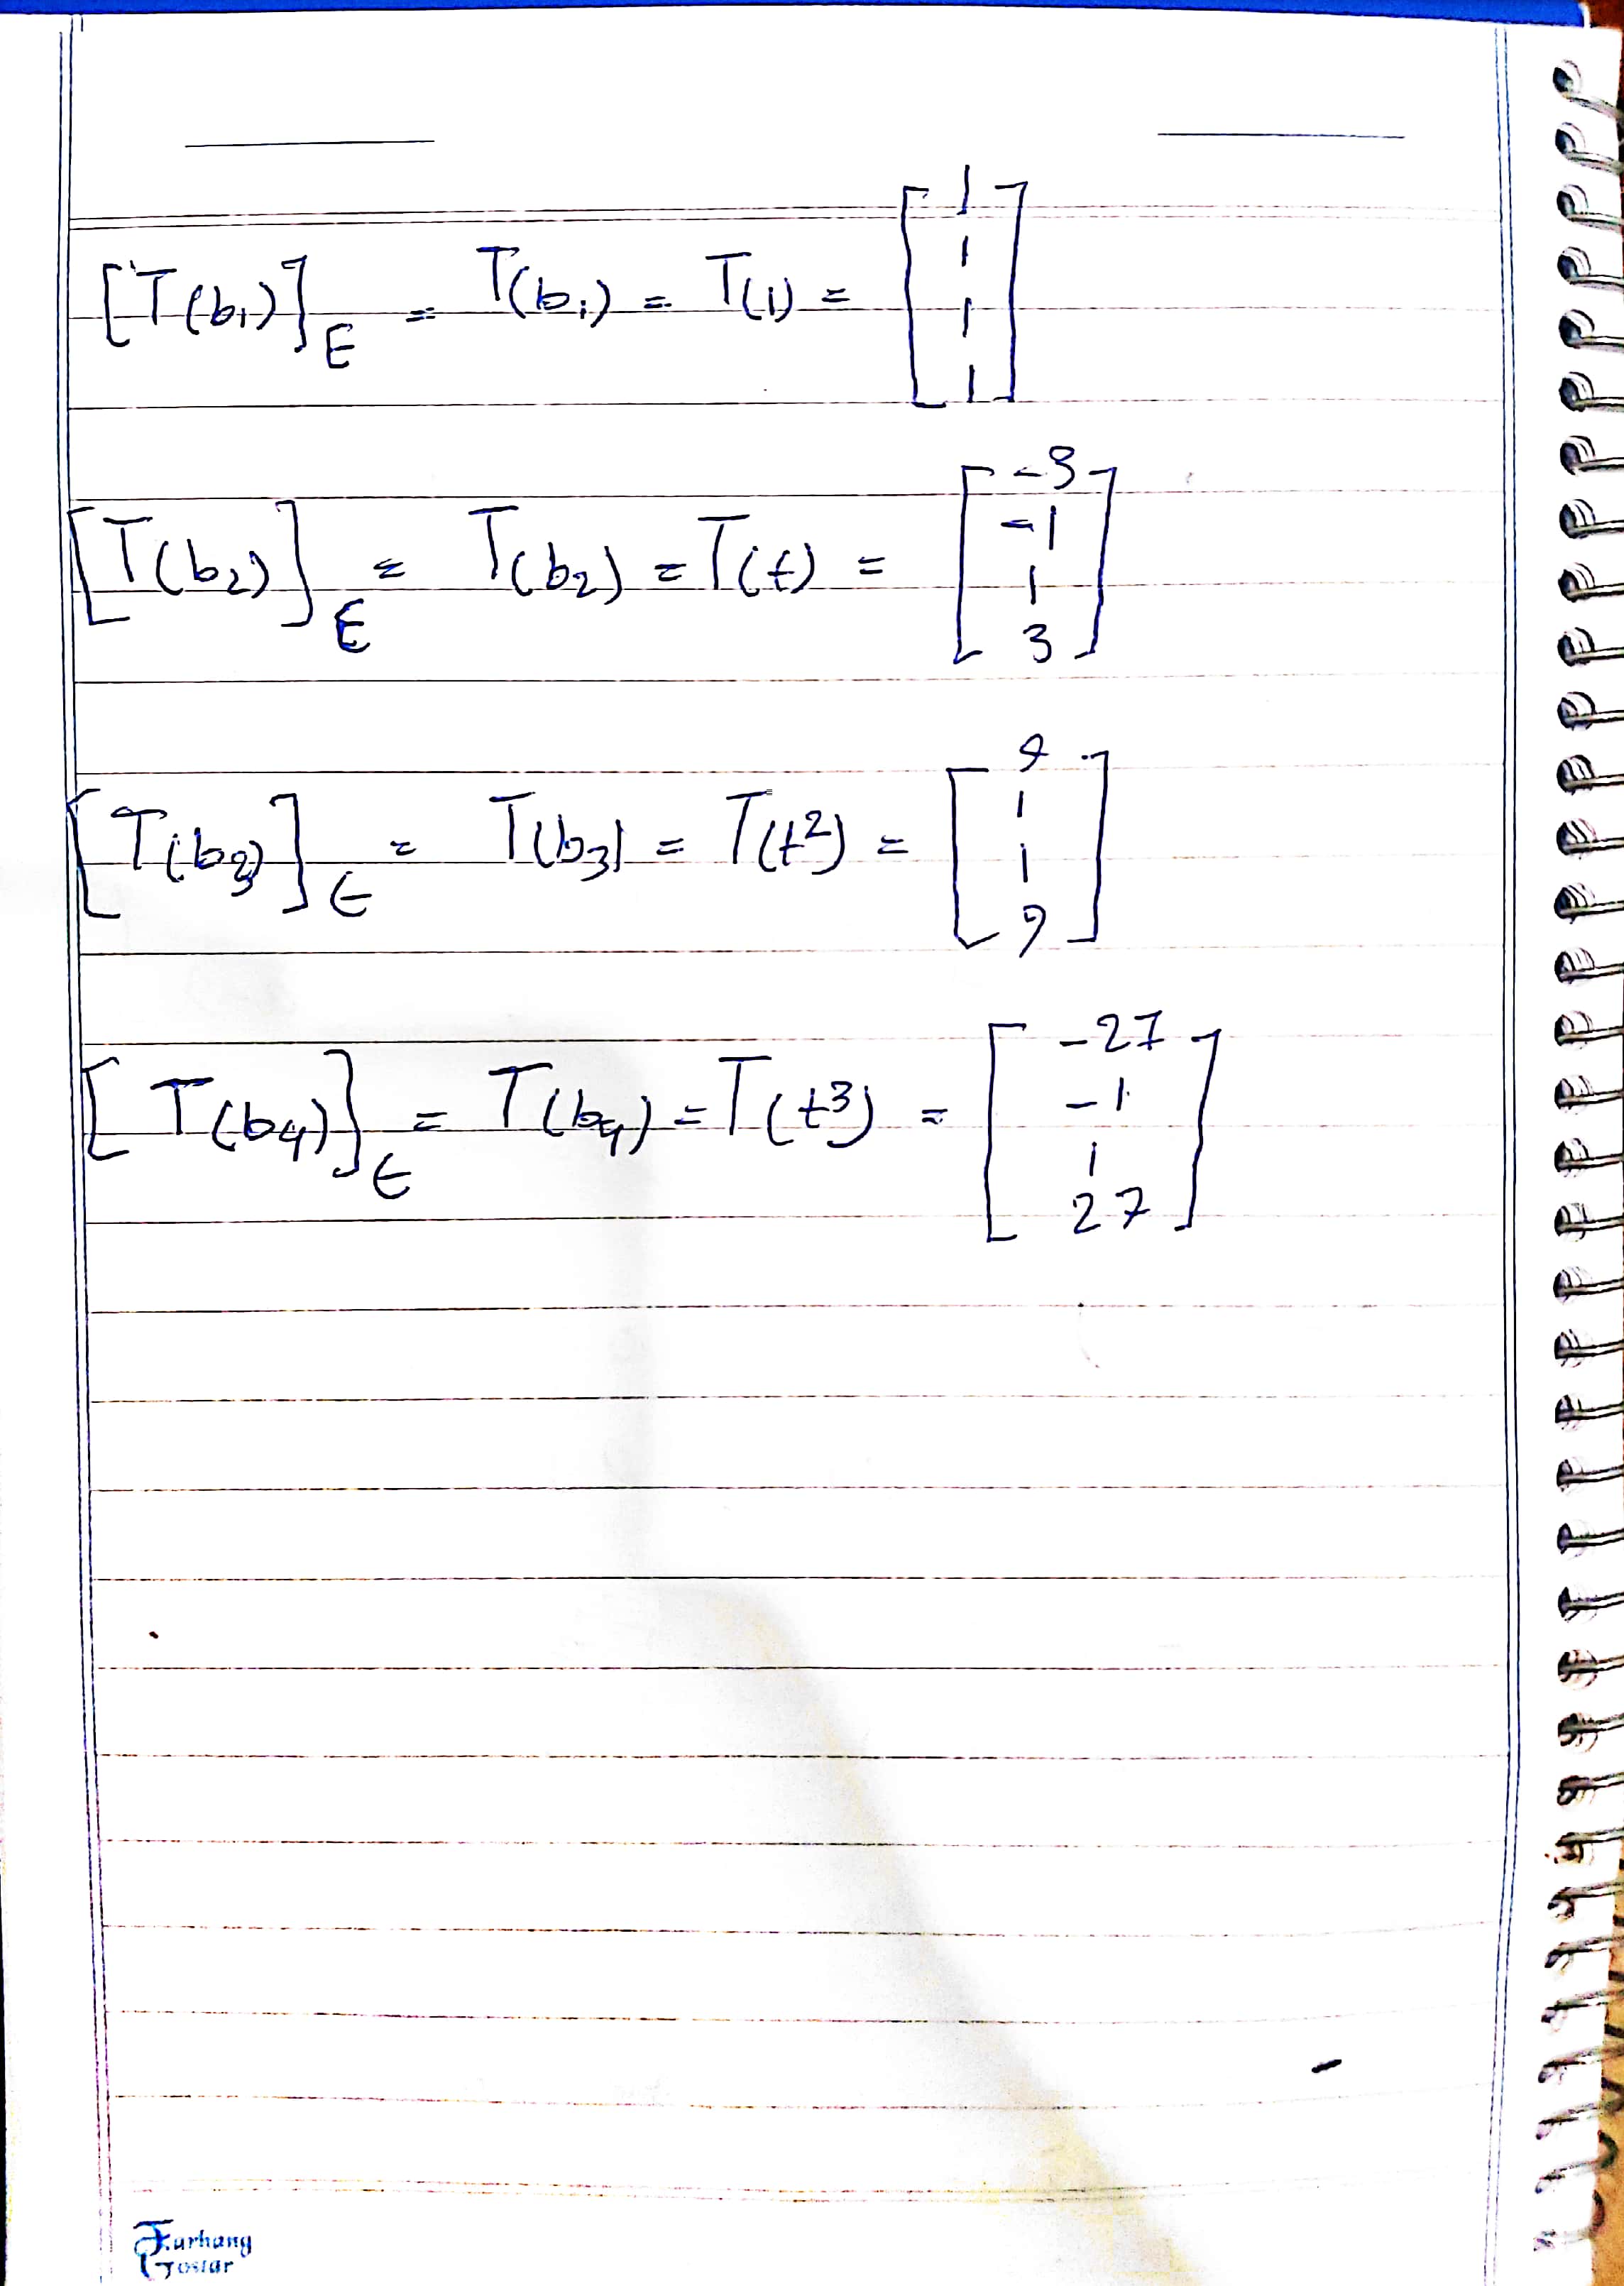 [T(b₁)]_E = T(b₁) = T(1) = [1 1 1 1]
[T(b₂)]_E = T(b₂) = T(t) = [-3 -1 1 3]
[T(b₃)]_E = T(b₃) = T(t²) = [9 1 1 9]
[T(b₄)]_E = T(b₄) = T(t³) = [-27 -1 1 27]
Farhang
Gostar